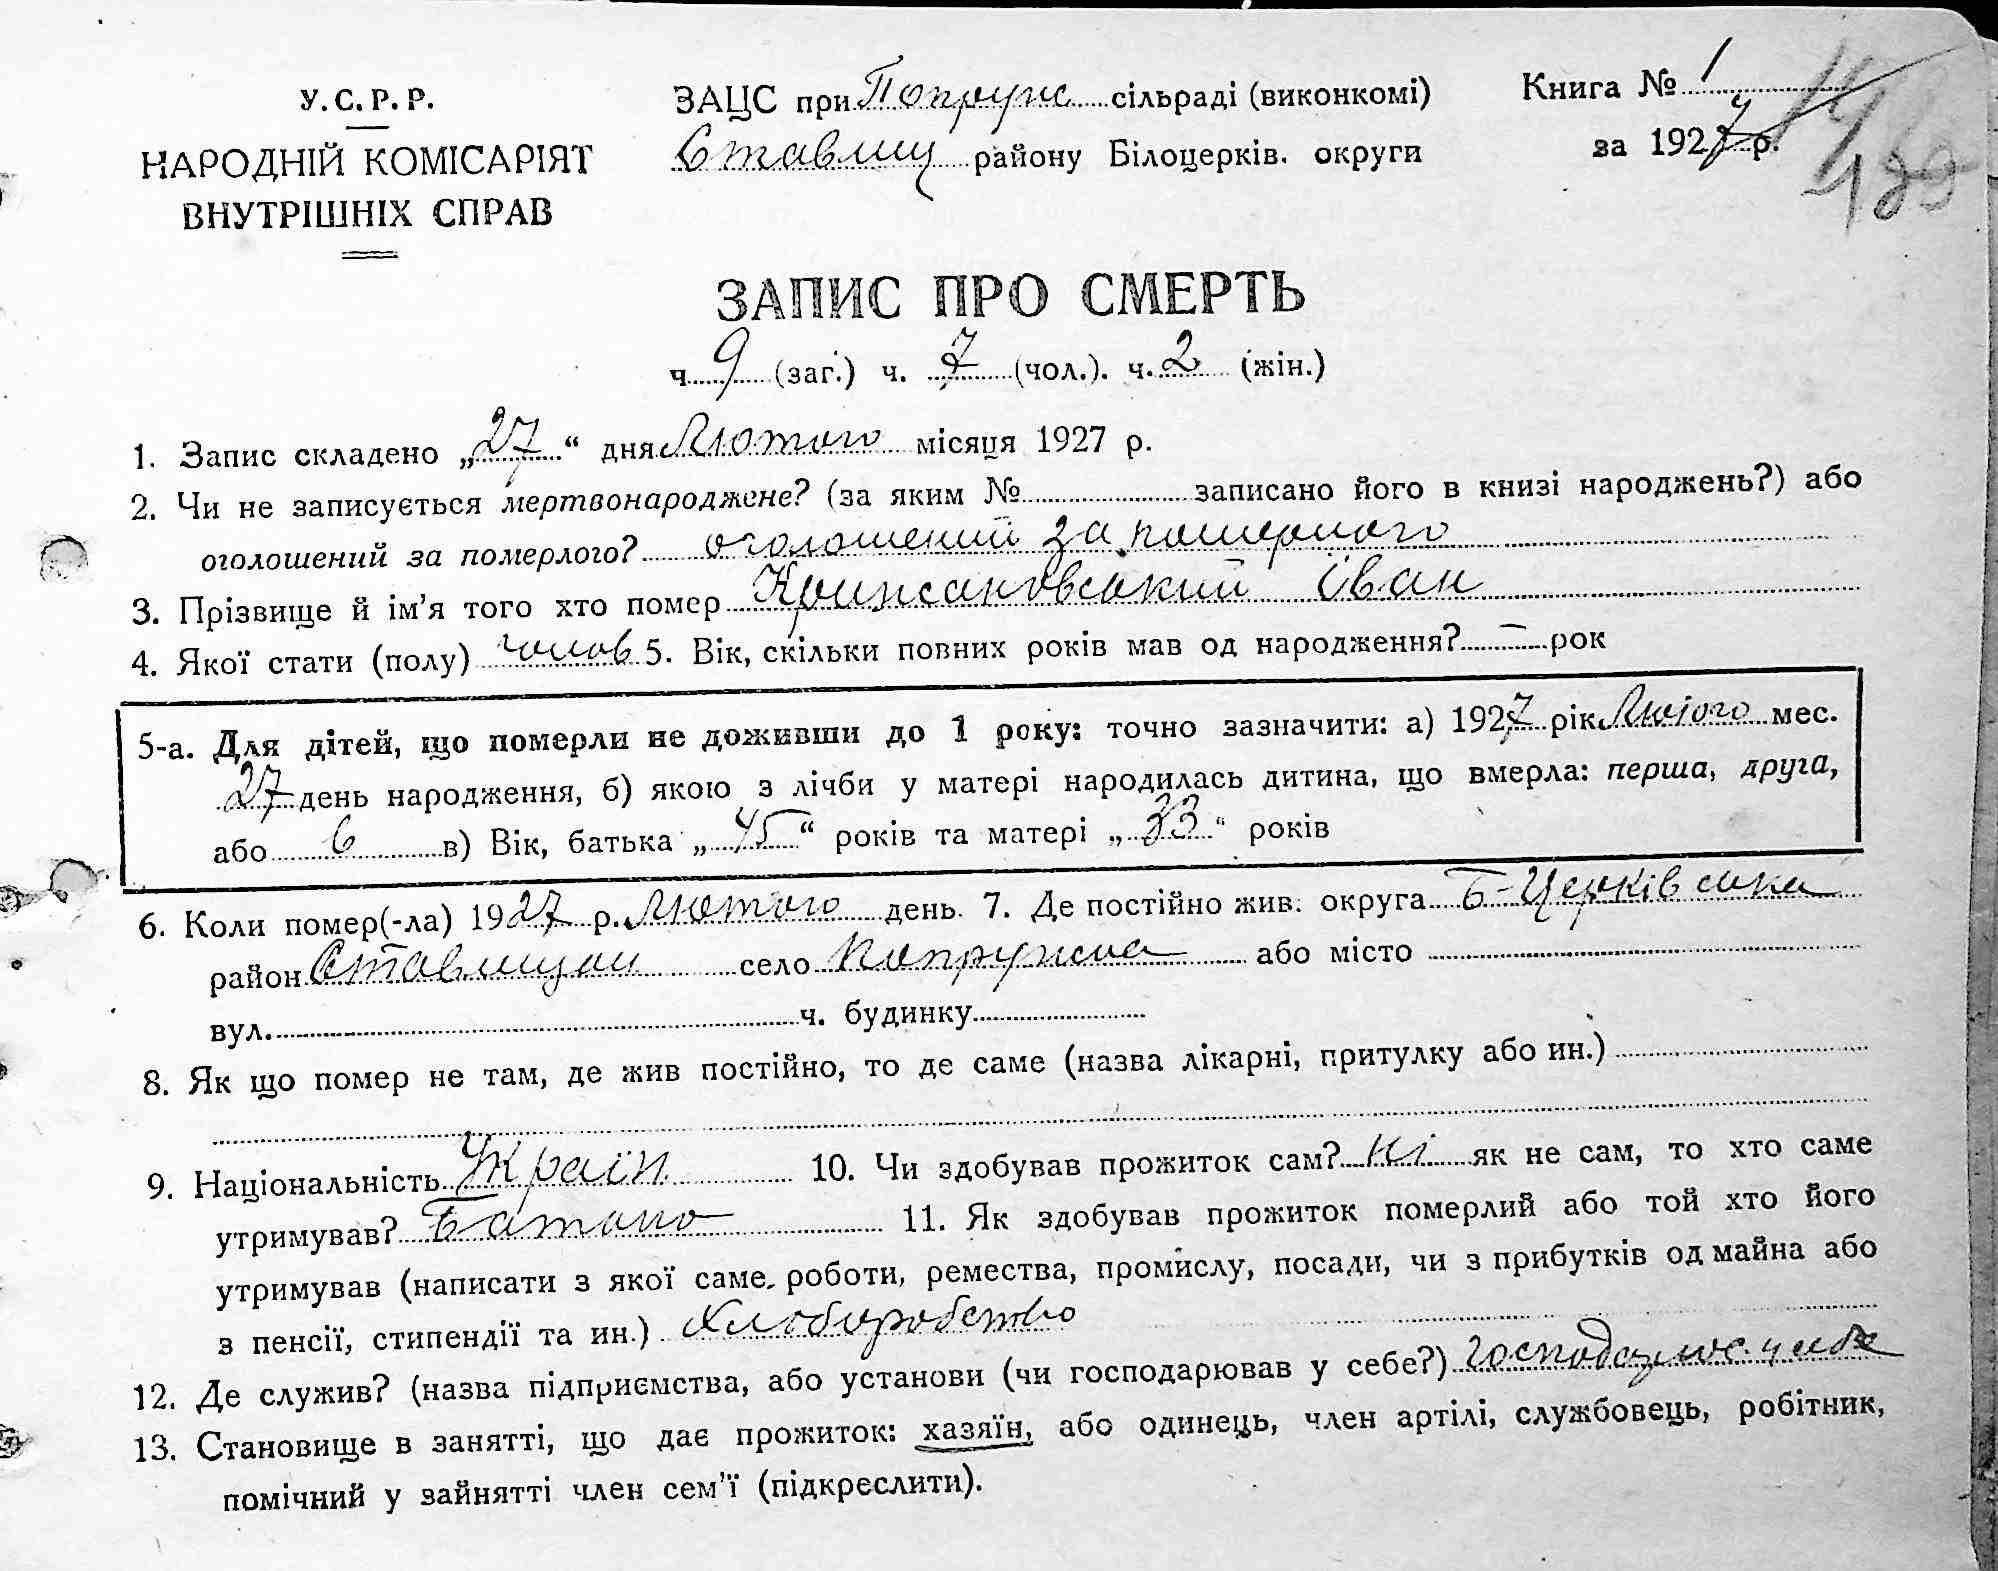 У.С.Р.Р.
НАРОДНІЙ КОМІСАРІЯТ
ВНУТРІШНІХ СПРАВ
ЗАЦС при Попруж сільраді (виконкомі)
Ставищ району Білоцерків. округи
Книга № 1
за 1927 р.
199
ЗАПИС ПРО СМЕРТЬ
ч 9 (заг.) ч. 7 (чол.). ч. 2 (жін.)
1. Запис складено „27“ дня Лютого місяця 1927 р.
2. Чи не записується мертвонароджене? (за яким № записано його в книзі народжень?) або
оголошений за померлого? оголошений за померлого
3. Прізвище й ім'я того хто помер Крижановський Іван
4. Якої стати (полу) чолов 5. Вік, скільки повних років мав од народження? — рок
5-а. Для дітей, що померли не доживши до 1 року: точно зазначити: а) 1927 рік Лютого мес.
27 день народження, б) якою з лічби у матері народилась дитина, що вмерла: перша, друга,
або 6 в) Вік, батька „45“ років та матері „33“ років
6. Коли помер(-ла) 1927 р. Лютого день. 7. Де постійно жив. округа Б-Церківська
район Ставищан село Попружна або місто
вул. ч. будинку
8. Як що помер не там, де жив постійно, то де саме (назва лікарні, притулку або ин.)
9. Національність Україн. 10. Чи здобував прожиток сам? ні як не сам, то хто саме
утримував? Батько 11. Як здобував прожиток померлий або той хто його
утримував (написати з якої саме роботи, ремества, промислу, посади, чи з прибутків од майна або
з пенсії, стипендії та ин.) Хлоборобство
12. Де служив? (назва підприємства, або установи (чи господарював у себе?)
13. Становище в занятті, що дає прожиток: хазяїн, або одинець, член артілі, службовець, робітник,
помічний у зайнятті член сем'ї (підкреслити).